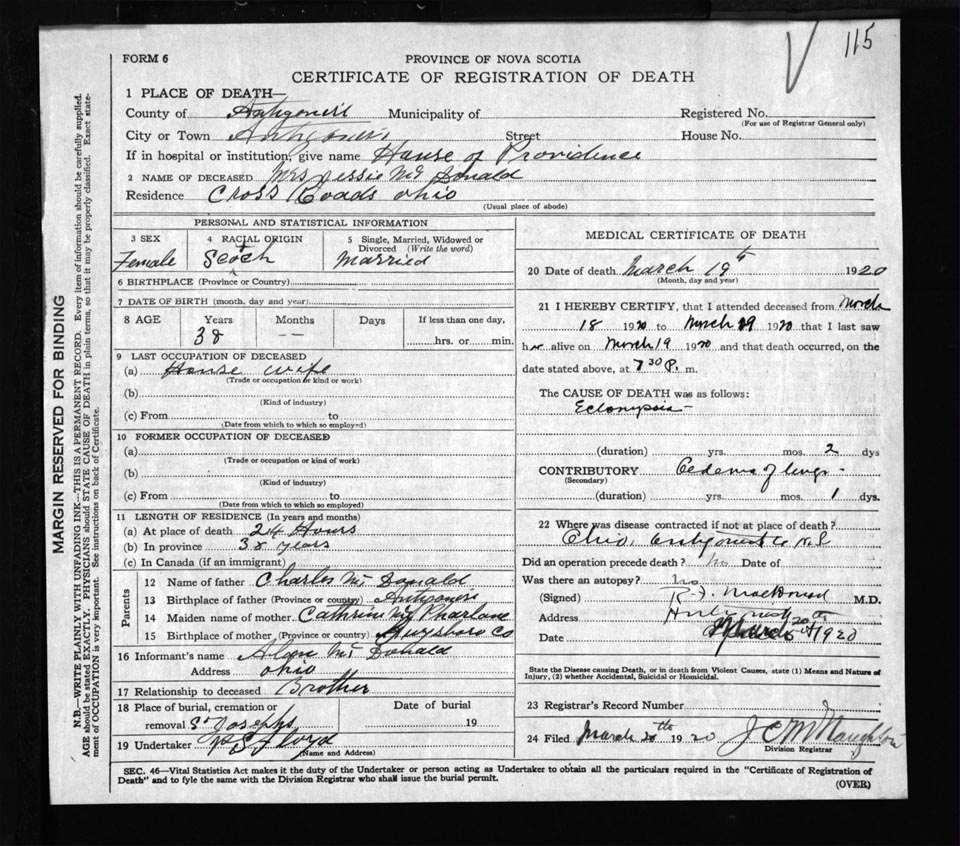 115
FORM 6
PROVINCE OF NOVA SCOTIA
CERTIFICATE OF REGISTRATION OF DEATH
1 PLACE OF DEATH—
County of Antigonish Municipality of Registered No.
(For use of Registrar General only)
City or Town Antigonish Street House No.
If in hospital or institution, give name House of Providence
2 NAME OF DECEASED Mrs Jessie Mc Donald
Residence Cross Roads Ohio
(Usual place of abode)
PERSONAL AND STATISTICAL INFORMATION
3 SEX 4 RACIAL ORIGIN 5 Single, Married, Widowed or Divorced (Write the word)
Female Scotch Married
6 BIRTHPLACE (Province or Country)
7 DATE OF BIRTH (month, day and year)
8 AGE Years Months Days If less than one day,
38 — — hrs. or min.
9 LAST OCCUPATION OF DECEASED
(a) House wife
(Trade or occupation or kind or work)
(b)
(Kind of industry)
(c) From to
(Date from which to which so employed)
10 FORMER OCCUPATION OF DECEASED
(a)
(Trade or occupation or kind of work)
(b)
(Kind of industry)
(c) From to
(Date from which to which so employed)
11 LENGTH OF RESIDENCE (In years and months)
(a) At place of death 24 Hours
(b) In province 38 years
(c) In Canada (if an immigrant)
Parents
12 Name of father Charles Mc Donald
13 Birthplace of father (Province or country) Antigonish
14 Maiden name of mother Cathrin Mc Pharlane
15 Birthplace of mother (Province or country) Guysboro Co
16 Informant's name Mc Donald
Address Ohio
17 Relationship to deceased Brother
18 Place of burial, cremation or Date of burial
removal St Josephs 19
19 Undertaker Floyd
(Name and Address)
MEDICAL CERTIFICATE OF DEATH
20 Date of death March 19th 1920
(Month, day and year)
21 I HEREBY CERTIFY, that I attended deceased from March
18 1920 to March 19 1920 that I last saw
her alive on March 19 1920 and that death occurred, on the
date stated above, at 7 30 P. m.
The CAUSE OF DEATH was as follows:
Eclampsia —
(duration) yrs. mos. 2 dys
CONTRIBUTORY Oedema of lungs —
(Secondary)
(duration) yrs. mos. 1 dys.
22 Where was disease contracted if not at place of death?
Ohio, Antigonish Co N.S
Did an operation precede death? No Date of
Was there an autopsy? no
(Signed) MacDonald M.D.
Address Antigonish
Date March 20th 1920
State the Disease causing Death, or in death from Violent Causes, state (1) Means and Nature of
Injury, (2) whether Accidental, Suicidal or Homicidal.
23 Registrar's Record Number
24 Filed March 20th 1920 J C McNaughton
Division Registrar
SEC. 46—Vital Statistics Act makes it the duty of the Undertaker or person acting as Undertaker to obtain all the particulars required in the "Certificate of Registration of
Death" and to fyle the same with the Division Registrar who shall issue the burial permit.
(OVER)
MARGIN RESERVED FOR BINDING
N.B.—WRITE PLAINLY WITH UNFADING INK—THIS IS A PERMANENT RECORD. Every item of information should be carefully supplied.
AGE should be stated EXACTLY. PHYSICIANS should STATE CAUSE OF DEATH in plain terms, so that it may be properly classified. Exact state-
ment of OCCUPATION is very important. See instructions on back of Certificate.